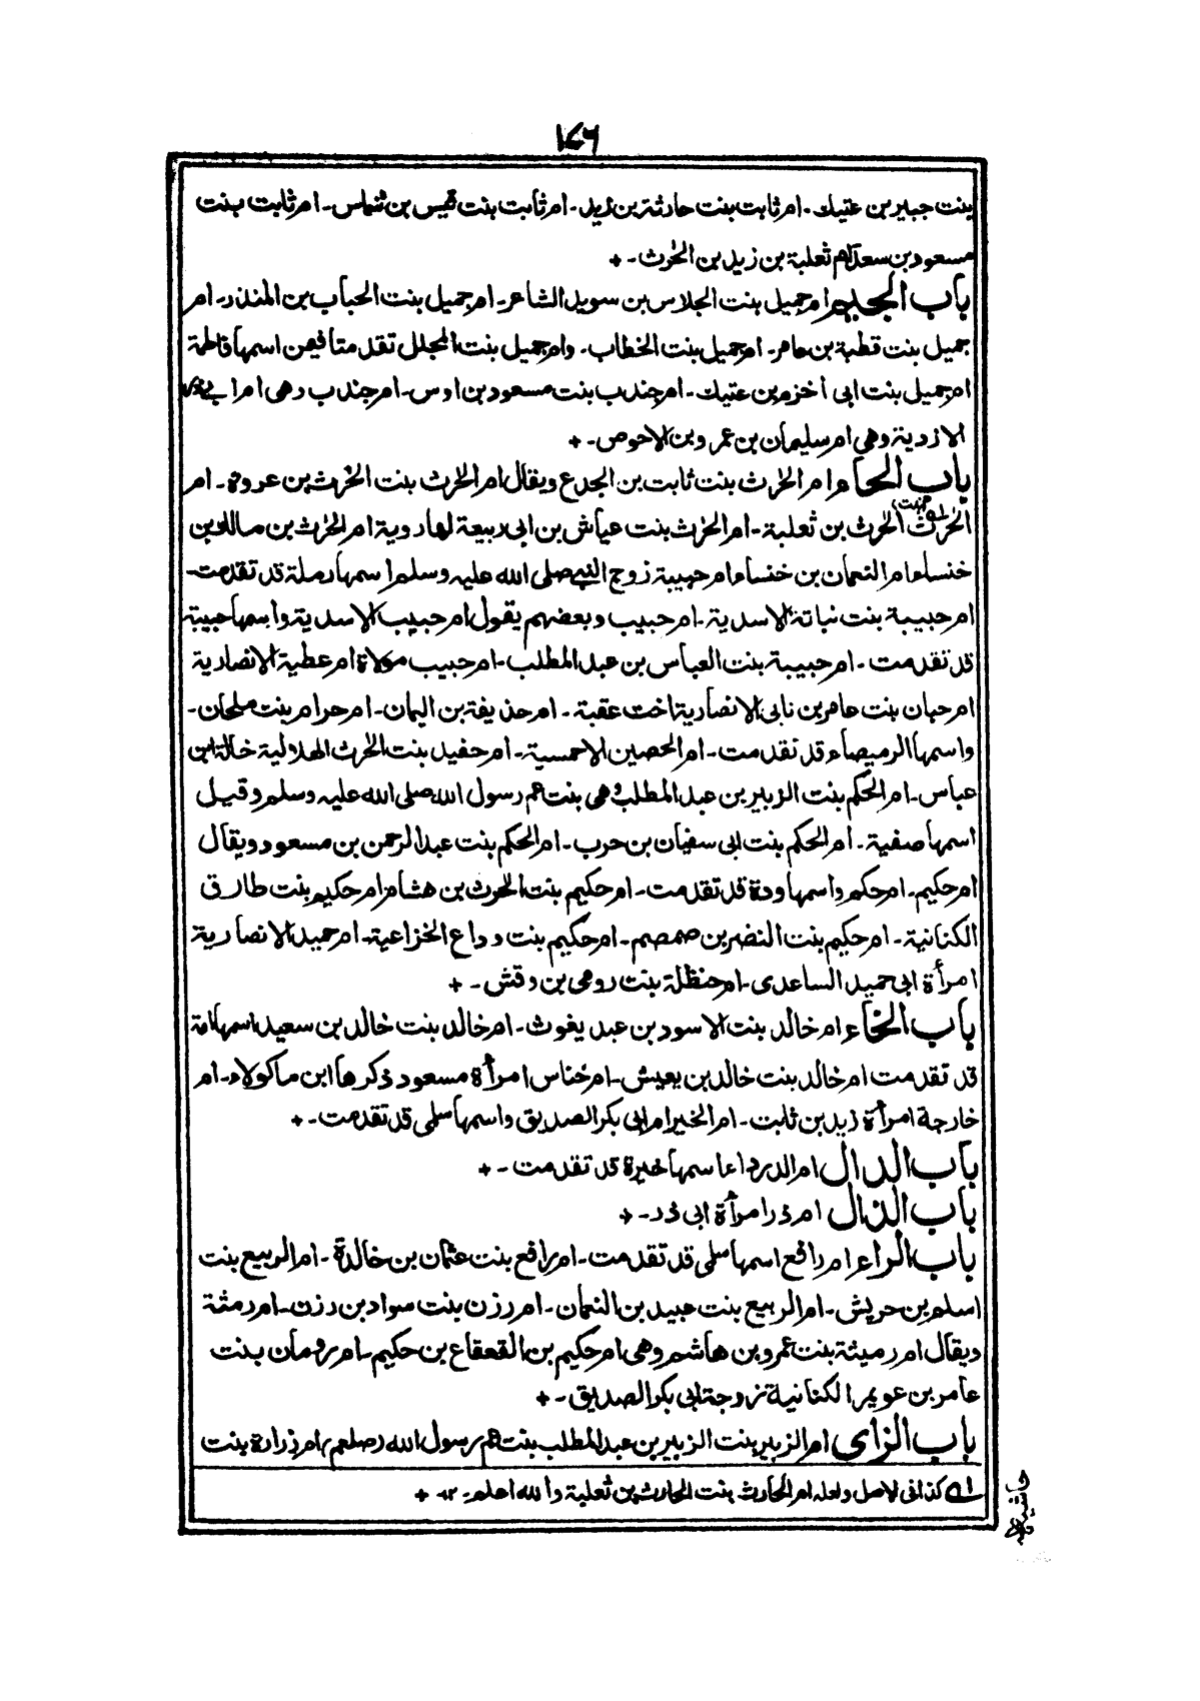 ١٧٦
بنت جبير بن عتيك۔ ام ثابت بنت حارثة بن زيد۔ ام ثابت بنت قيس بن شماس۔ ام ثابت بنت
مسعود بن سعد ام ثعلبة بن زيد بن الحرث۔
باب الجيم ام جميل بنت الجلاس بن سويد الشاعر۔ ام جميل بنت الحباب بن المنذر۔ ام
جميل بنت قطبة بن عامر۔ ام جميل بنت الخطاب۔ وام جميل بنت المجلل تقدمتا فيمن اسمها فاطمة
ام جميل بنت ابى أخزم بن عتيك۔ ام جندب بنت مسعود بن اوس۔ ام جندب وهى ام ابى ذر
الازدية وهى ام سليمان بن عمرو بن الاحوص۔
باب الحاء ام الحرث بنت ثابت بن الجدع ويقال ام الحرث بنت الحرث بن عروة۔ ام
الحرث بنت الحرث بن ثعلبة۔ ام الحرث بنت عياش بن ابى ربيعة لها رؤية ام الحرث بن مالك بن
خنساء ام النعمان بن خنساء ام حبيبة زوج النبى صلى الله عليه وسلم اسمها رملة قد تقدمت۔
ام حبيبة بنت نباتة الاسدية۔ ام حبيب وبعضهم يقول ام حبيب الاسدية واسمها حبيبة
قد تقدمت۔ ام حبيبة بنت العباس بن عبد المطلب۔ ام حبيب مولاة ام عطية الانصارية
ام حبان بنت عامر بن نابى الانصارية اخت عقبة۔ ام حذيفة بن اليمان۔ ام حرام بنت ملحان۔
واسمها الرميصاء قد تقدمت۔ ام الحصين الاحمسية۔ ام حفيد بنت الحرث الهلالية خالة ابن
عباس۔ ام الحكم بنت الزبير بن عبد المطلب وهى بنت عم رسول الله صلى الله عليه وسلم وقيل
اسمها صفية۔ ام الحكم بنت ابى سفيان بن حرب۔ ام الحكم بنت عبد الرحمن بن مسعود ويقال
ام حكيم۔ ام حكم واسمها ودة قد تقدمت۔ ام حكيم بنت الحرث بن هشام ام حكيم بنت طارق
الكنانية۔ ام حكيم بنت النضر بن ضمضم۔ ام حكيم بنت وداع الخزاعية۔ ام حميد الانصارية
امرأة ابى حميد الساعدى۔ ام حنظلة بنت رومى بن وقش۔
باب الخاء ام خالد بنت الاسود بن عبد يغوث۔ ام خالد بنت خالد بن سعيد اسمها امة
قد تقدمت ام خالد بنت خالد بن يعيش۔ ام خناس امرأة مسعود ذكرها ابن ماكولا۔ ام
خارجة امرأة زيد بن ثابت۔ ام الخير ام ابى بكر الصديق واسمها سلمى قد تقدمت۔
باب الدال ام الدرداء اسمها خيرة قد تقدمت۔
باب الذال ام ذر امرأة ابى ذر۔
باب الراء ام رافع اسمها سلمى قد تقدمت۔ ام رافع بنت عثمان بن خالدة۔ ام الربيع بنت
اسلم بن حريش۔ ام الربيع بنت عبيد بن النعمان۔ ام رزن بنت سواد بن رزن۔ ام رمثة
ويقال ام رميثة بنت عمرو بن هاشم وهى ام حكيم بن القعقاع بن حكيم۔ ام رومان بنت
عامر بن عويمر الكنانية زوجة ابى بكر الصديق۔
باب الزاى ام الزبير بنت الزبير بن عبد المطلب بنت عم رسول الله (صلعم) ام زرارة بنت
له كذا فى الاصل ولعله ام الحارث بنت الحارث بن ثعلبة والله اعلم۔ ١٢